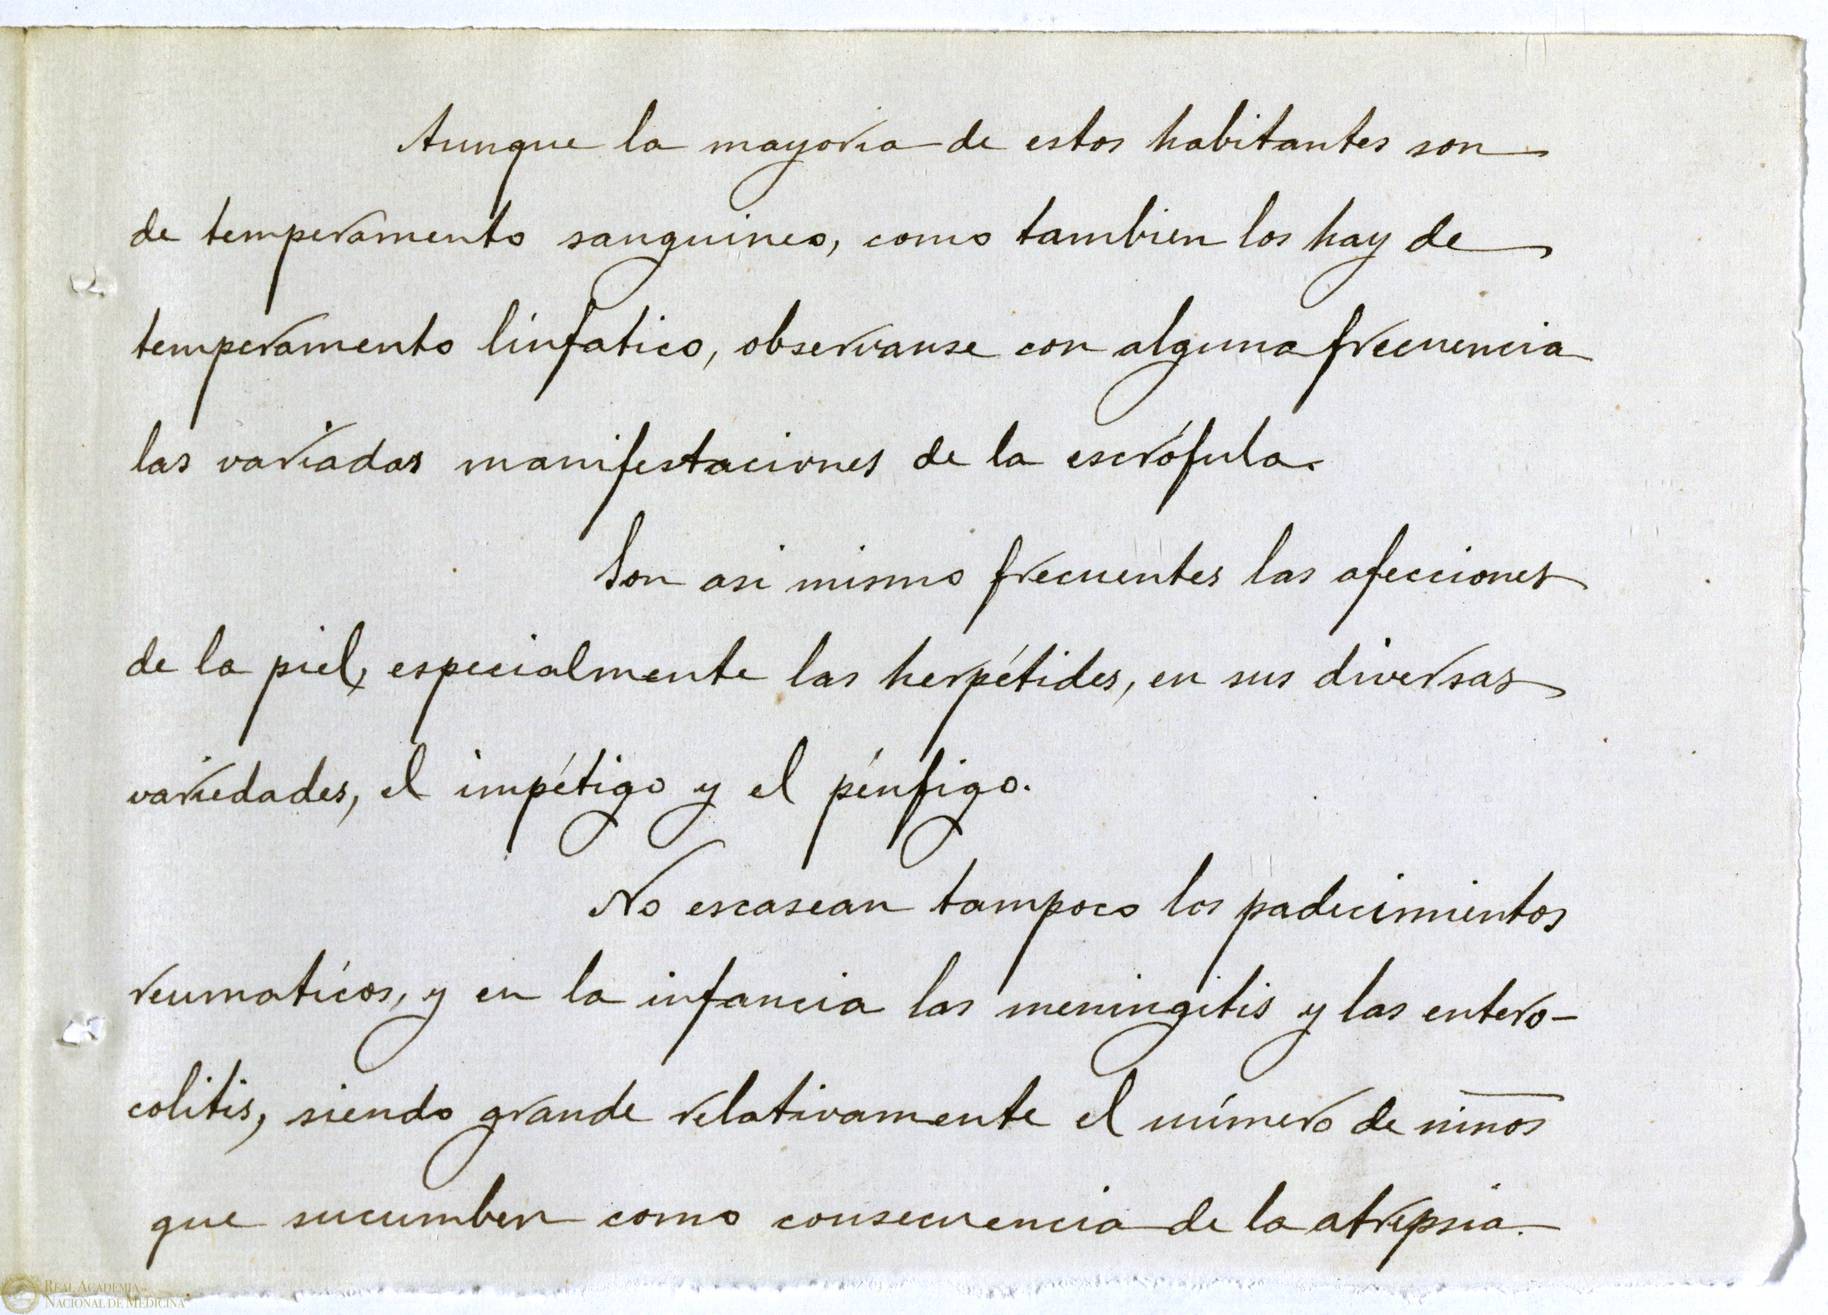 Aunque la mayoria de estos habitantes son
de temperamento sanguineo, como tambien los hay de
temperamento linfatico, observanse con alguna frecuencia
las variadas manifestaciones de la escrófula.
Son asi mismo frecuentes las afecciones
de la piel, especialmente las herpétides, en sus diversas
variedades, el impétigo y el pénfigo.
No escasean tampoco los padecimientos
reumaticos, y en la infancia las meningitis y las entero-
colitis, siendo grande relativamente el número de niños
que sucumben como consecuencia de la atrepsia.
REAL ACADEMIA
NACIONAL DE MEDICINA